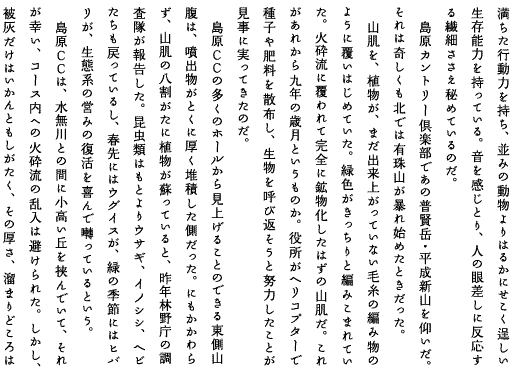 満ちた行動力を持ち、並みの動物よりはるかにせこく逞しい
生存能力を持っている。音を感じとり、人の眼差しに反応す
る繊細ささえ秘めているのだ。
島原カントリー倶楽部であの普賢岳・平成新山を仰いだ。
それは奇しくも北では有珠山が暴れ始めたときだった。
山肌を、植物が、まだ出来上がっていない毛糸の編み物の
ように覆いはじめていた。緑色がきっちりと編みこまれてい
た。火砕流に覆われて完全に鉱物化したはずの山肌だ。これ
があれから九年の歳月というものか。役所がヘリコプターで
種子や肥料を散布し、生物を呼び返そうと努力したことが
見事に実ってきたのだ。
島原ＣＣの多くのホールから見上げることのできる東側山
腹は、噴出物がとくに厚く堆積した側だった。にもかかわら
ず、山肌の八割がたに植物が蘇っていると、昨年林野庁の調
査隊が報告した。昆虫類はもとよりウサギ、イノシシ、ヘビ
たちも戻っているし、春先にはウグイスが、緑の季節にはヒバ
リが、生態系の営みの復活を喜んで囀っているという。
島原ＣＣは、水無川との間に小高い丘を挟んでいて、それ
が幸い、コース内への火砕流の乱入は避けられた。しかし、
被灰だけはいかんともしがたく、その厚さ、溜まりどころは